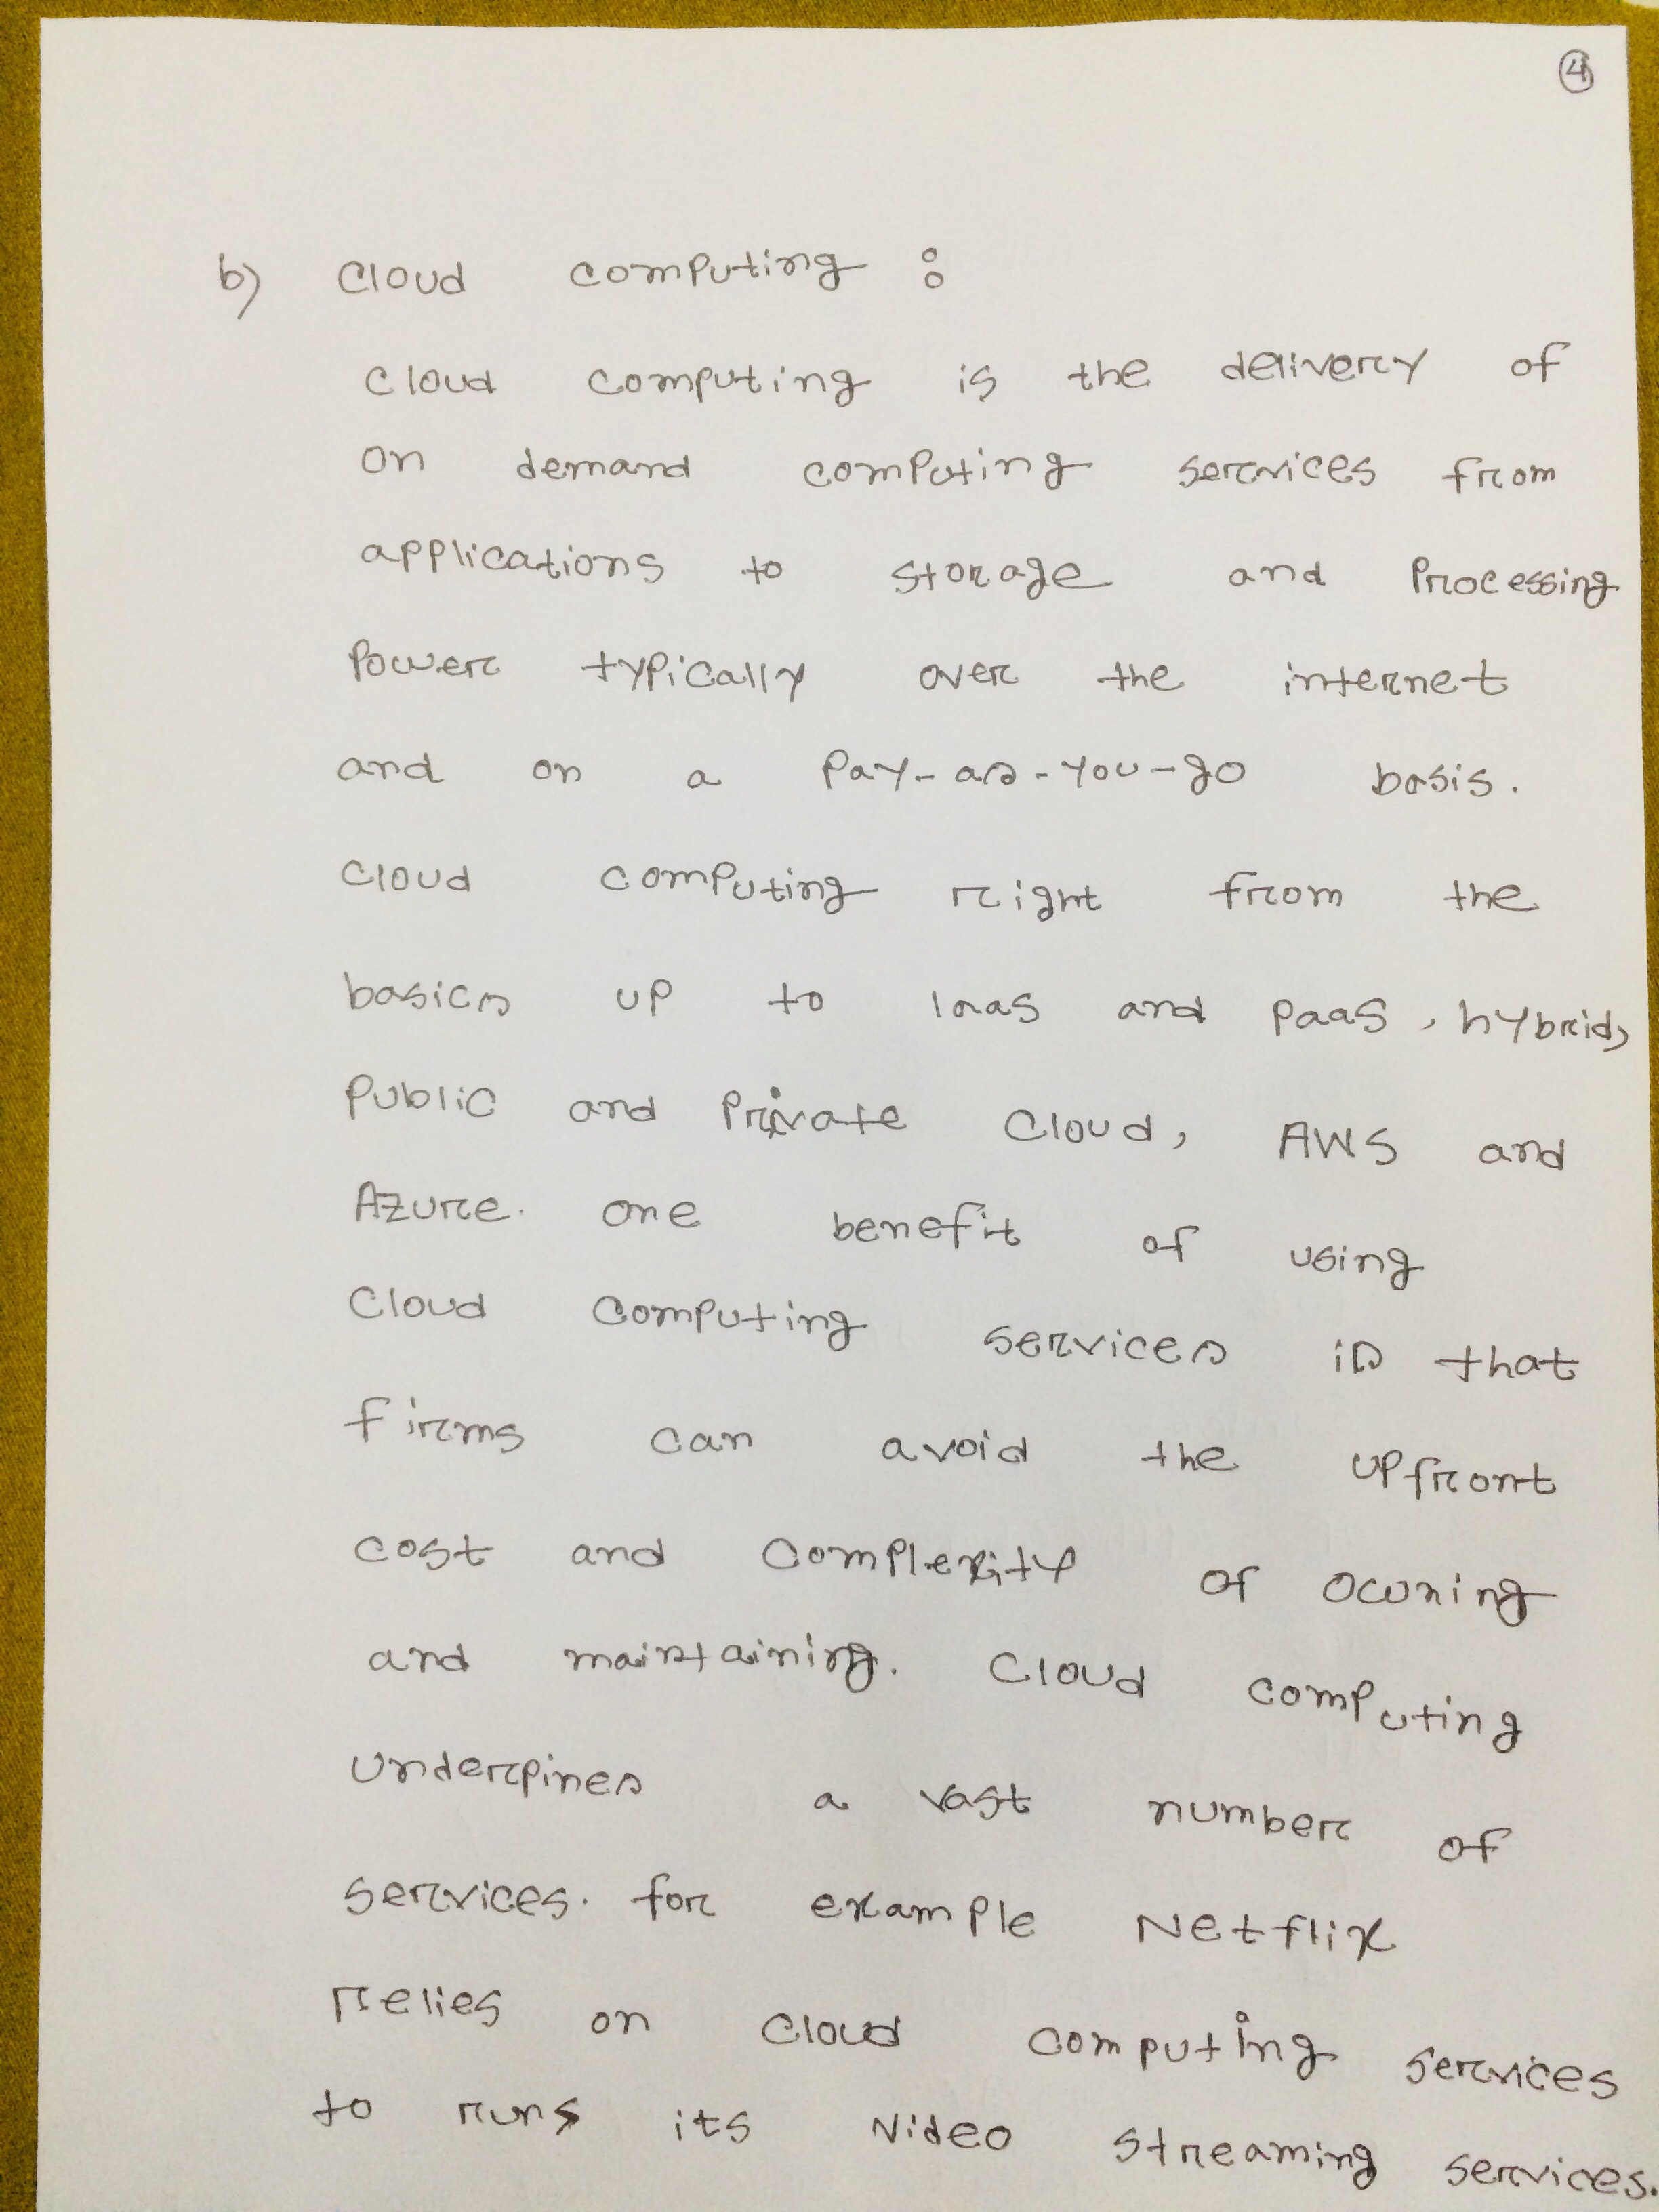 4
b) Cloud computing :
Cloud computing is the delivery of
on demand computing services from
applications to storage and Processing
Power typically over the internet
and on a Pay-as-you-go basis.
Cloud computing right from the
basics up to Iaas and PaaS, hybrid,
Public and Private Cloud, AWS and
Azure. one benefit of using
Cloud Computing services is that
firms can avoid the upfront
cost and complexity of owning
and maintaining. Cloud computing
underpines a vast number of
services. for example Netflix
relies on Cloud computing services
to runs its Video streaming services.